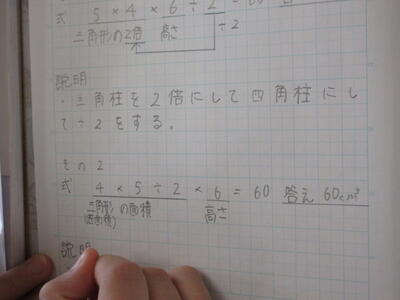 式 5×4×6÷2=60
三角形の2倍 高さ ÷2
説明
・三角柱を2倍にして四角柱にし
て÷2をする。
その2
式 4×5÷2×6=60 答え 60cm³
三角形の面積 高さ
(底面積)
説明